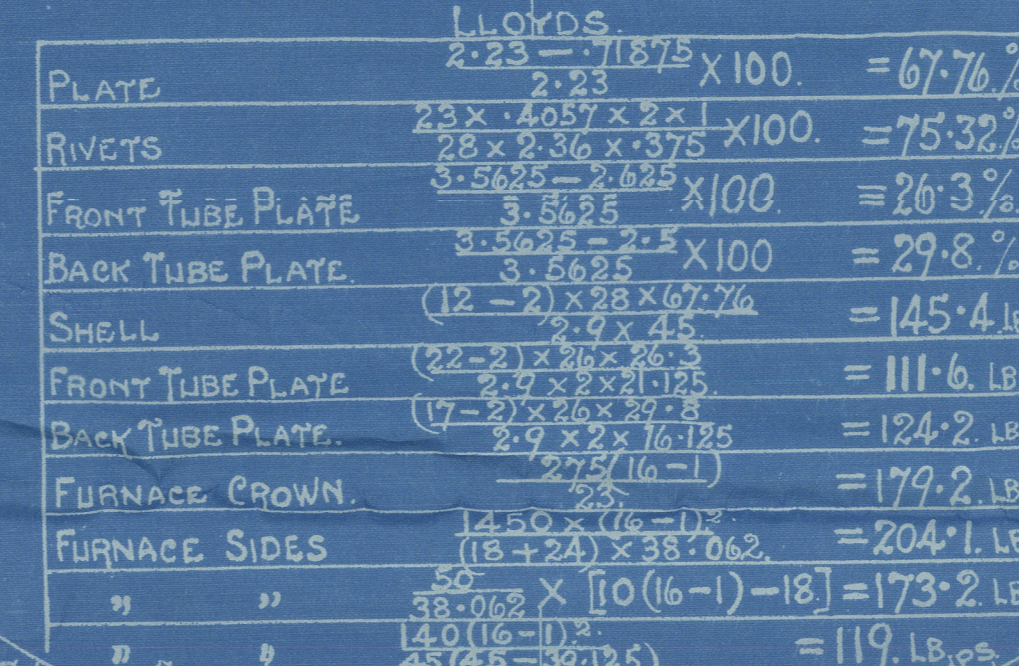 LLOYDS.
PLATE 2·23 – ·71875 / 2·23 × 100. = 67·76.%
RIVETS 23 × ·4057 × 2 × 1 / 28 × 2·36 × ·375 × 100. = 75·32%
FRONT TUBE PLATE 3·5625 – 2·625 / 3·5625 × 100. = 26·3%
BACK TUBE PLATE. 3·5625 – 2·5 / 3·5625 × 100 = 29·8.%
SHELL (12 – 2) × 28 × 67·76 / 2·9 × 45. = 145·4. LB
FRONT TUBE PLATE (22 – 2) × 26 × 26·3 / 2·9 × 2 × 21·125. = 111·6. LB
BACK TUBE PLATE. (17 – 2) × 26 × 29·8 / 2·9 × 2 × 16·125 = 124·2. LB
FURNACE CROWN. 275(16 – 1) / 23. = 179·2. LB
FURNACE SIDES 1450 × (16 – 1)². / (18 + 24) × 38·062. = 204·1. LB
„ „ 50 / 38·062 × [10(16 – 1) – 18.] = 173·2. LB
„ „ 140(16 – 1)². / 45(45 – 39·125) = 119. LB.PS.